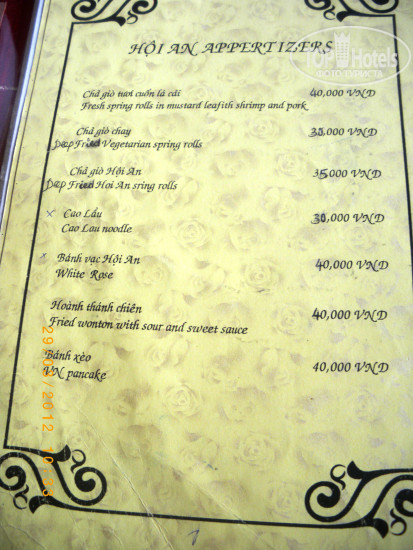 HỘI AN APPERTIZERS
TOP Hotels
ФОТО ТУРИСТА
Chả giò tươi cuốn lá cải 40,000 VND
Fresh spring rolls in mustard leafith shrimp and pork
Chả giò chay 30,000 VND
Deep Fried Vegetarian spring rolls
Chả giò Hội An 35000 VND
Deep Fried Hoi An sring rolls
x Cao Lầu 30,000 VND
Cao Lau noodle
x Bánh vạc Hội An 40,000 VND
White Rose
Hoành thánh chiên 40,000 VND
Fried wonton with sour and sweet sauce
Bánh xèo 40,000 VND
VN pancake
1